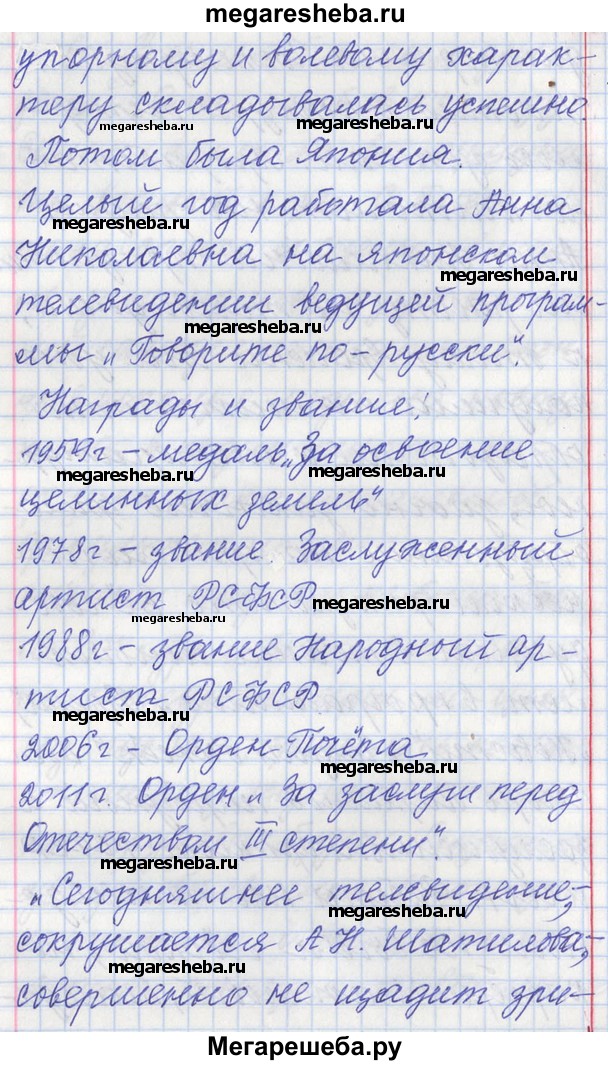 megaresheba.ru
упорному и волевому харак-
теру складывалась успешно.
megaresheba.ru megaresheba.ru
Потом была Япония.
Целый год работала Анна
megaresheba.ru
Николаевна на японском
megaresheba.ru
телевидении ведущей програм-
megaresheba.ru
мы „Говорите по-русски“.
Награды и звание:
1959г – медаль „За освоение
megaresheba.ru megaresheba.ru
целинных земель“
1978г – звание Заслуженный
артист РСФСР
megaresheba.ru
megaresheba.ru
1988г – звание Народный ар-
тист РСФСР
megaresheba.ru
2006г – Орден Почёта
megaresheba.ru
2011г. Орден „За заслуги перед
Отечеством III степени“.
megaresheba.ru
„Сегодняшнее телевидение,-
megaresheba.ru
сокрушается А.Н. Шатилова,-
megaresheba.ru
совершенно не щадит зри-
Мегарешеба.ру